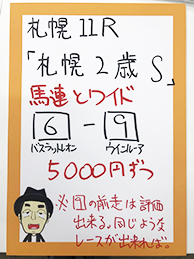 札幌11R
「札幌2歳S」
馬連とワイド
6 - 9
バスラットレオン ウインルーア
5000円ずつ
※9の前走は評価
出来る。同じような
レースが出来れば。